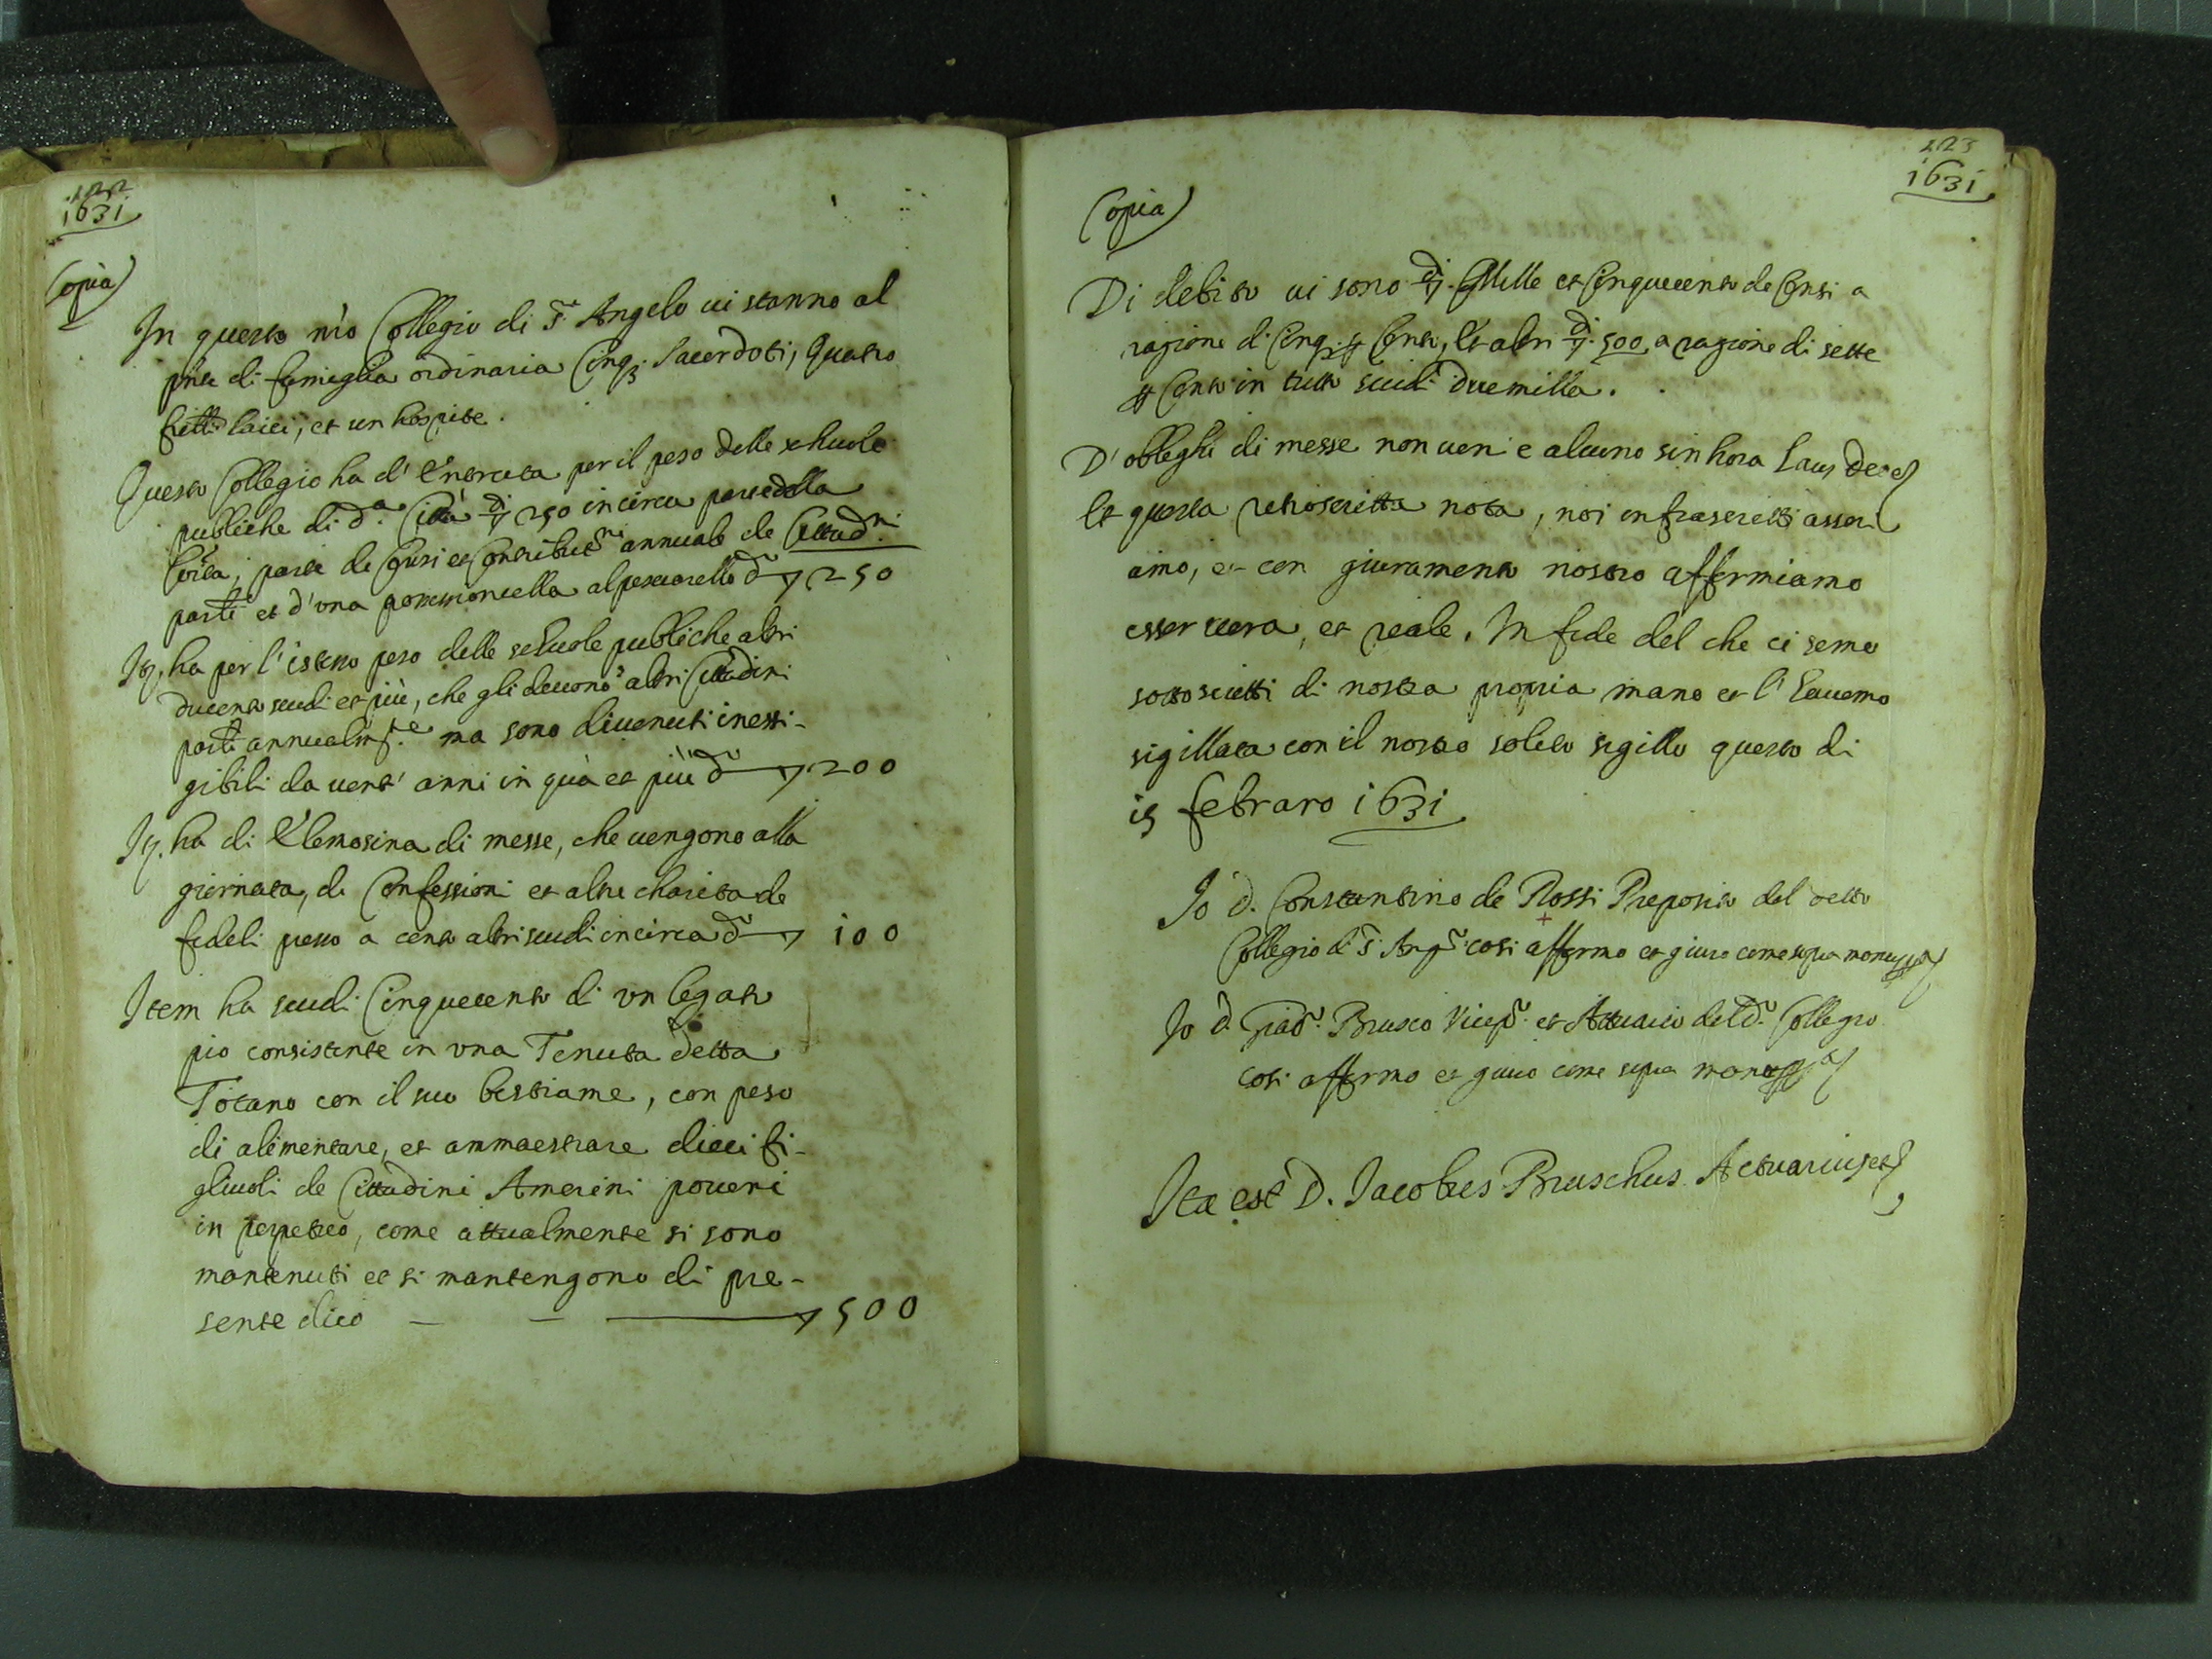 122
1631
Copia
In questo nr̃o Collegio di S. Angelo ui stanno al
pnte di famiglia ordinaria Cinq; Sacerdoti, Quatro
fr̃tti laici, et un hospite.
Questo Collegio ha d'Entrata per il peso delle schuole
publiche di d.a Città di 250 in circa parte della
parte de Censi et Contribut.ni annuale de Cittad.ni
parti.. et d'una possessioncella al pesciarello d 250
It. ha per l'istesso peso delle schuole publiche altri
ducento scudi et più, che gli deuono altri Cittadini
parti.. annualm.te ma sono diuenuti inessi-
gibili da uent'anni in quà et più d 200
It. ha di Elemosina di messe, che uengono alla
giornata, di Confessioni et altre charita de
fedeli presso a cento altri scudi incirca d 100
Item ha scudi Cinquecento di un legato
pio consistente in una Tenuta detta
Totano con il suo bestiame, con peso
di alimentare, et ammaestrare dieci fi-
gliuoli de Cittadini Amerini poueri
in perpetuo, come attualmente si sono
mantenuti et si mantengono di pre-
sente dico — — 500
223
1631
Copia
Di debito ui sono di Mille et Cinquecento de Censi a
ragione di Cinq; p Cento, Et altri di 500, a ragione di sette
p Cento in tutto scudi Duemilla.
D'oblighi di messe non ueni è alcuno sin hora Laus Deo
Et questa retroscritta nota, noi infrascritti asseri
amo, et con giuramento nostro affermiamo
esser uera, et reale. In fede del che ci semo
sottoscritti di nostra propria mano et l'hauemo
sigillata con il nostro solito sigillo questo di
15 febraro 1631
Io D. Constantino de Rossi Preposito del detto
Collegio di S. Ang.o cosi affermo et giuro come sopra manu ppa
Io D. Giac.o Brusco Vicep.o et Attuario del d.o Collegio
cosi affermo et giuro come sopra mano ppa
Ita est D. Jacobus Bruschus Actuarius et